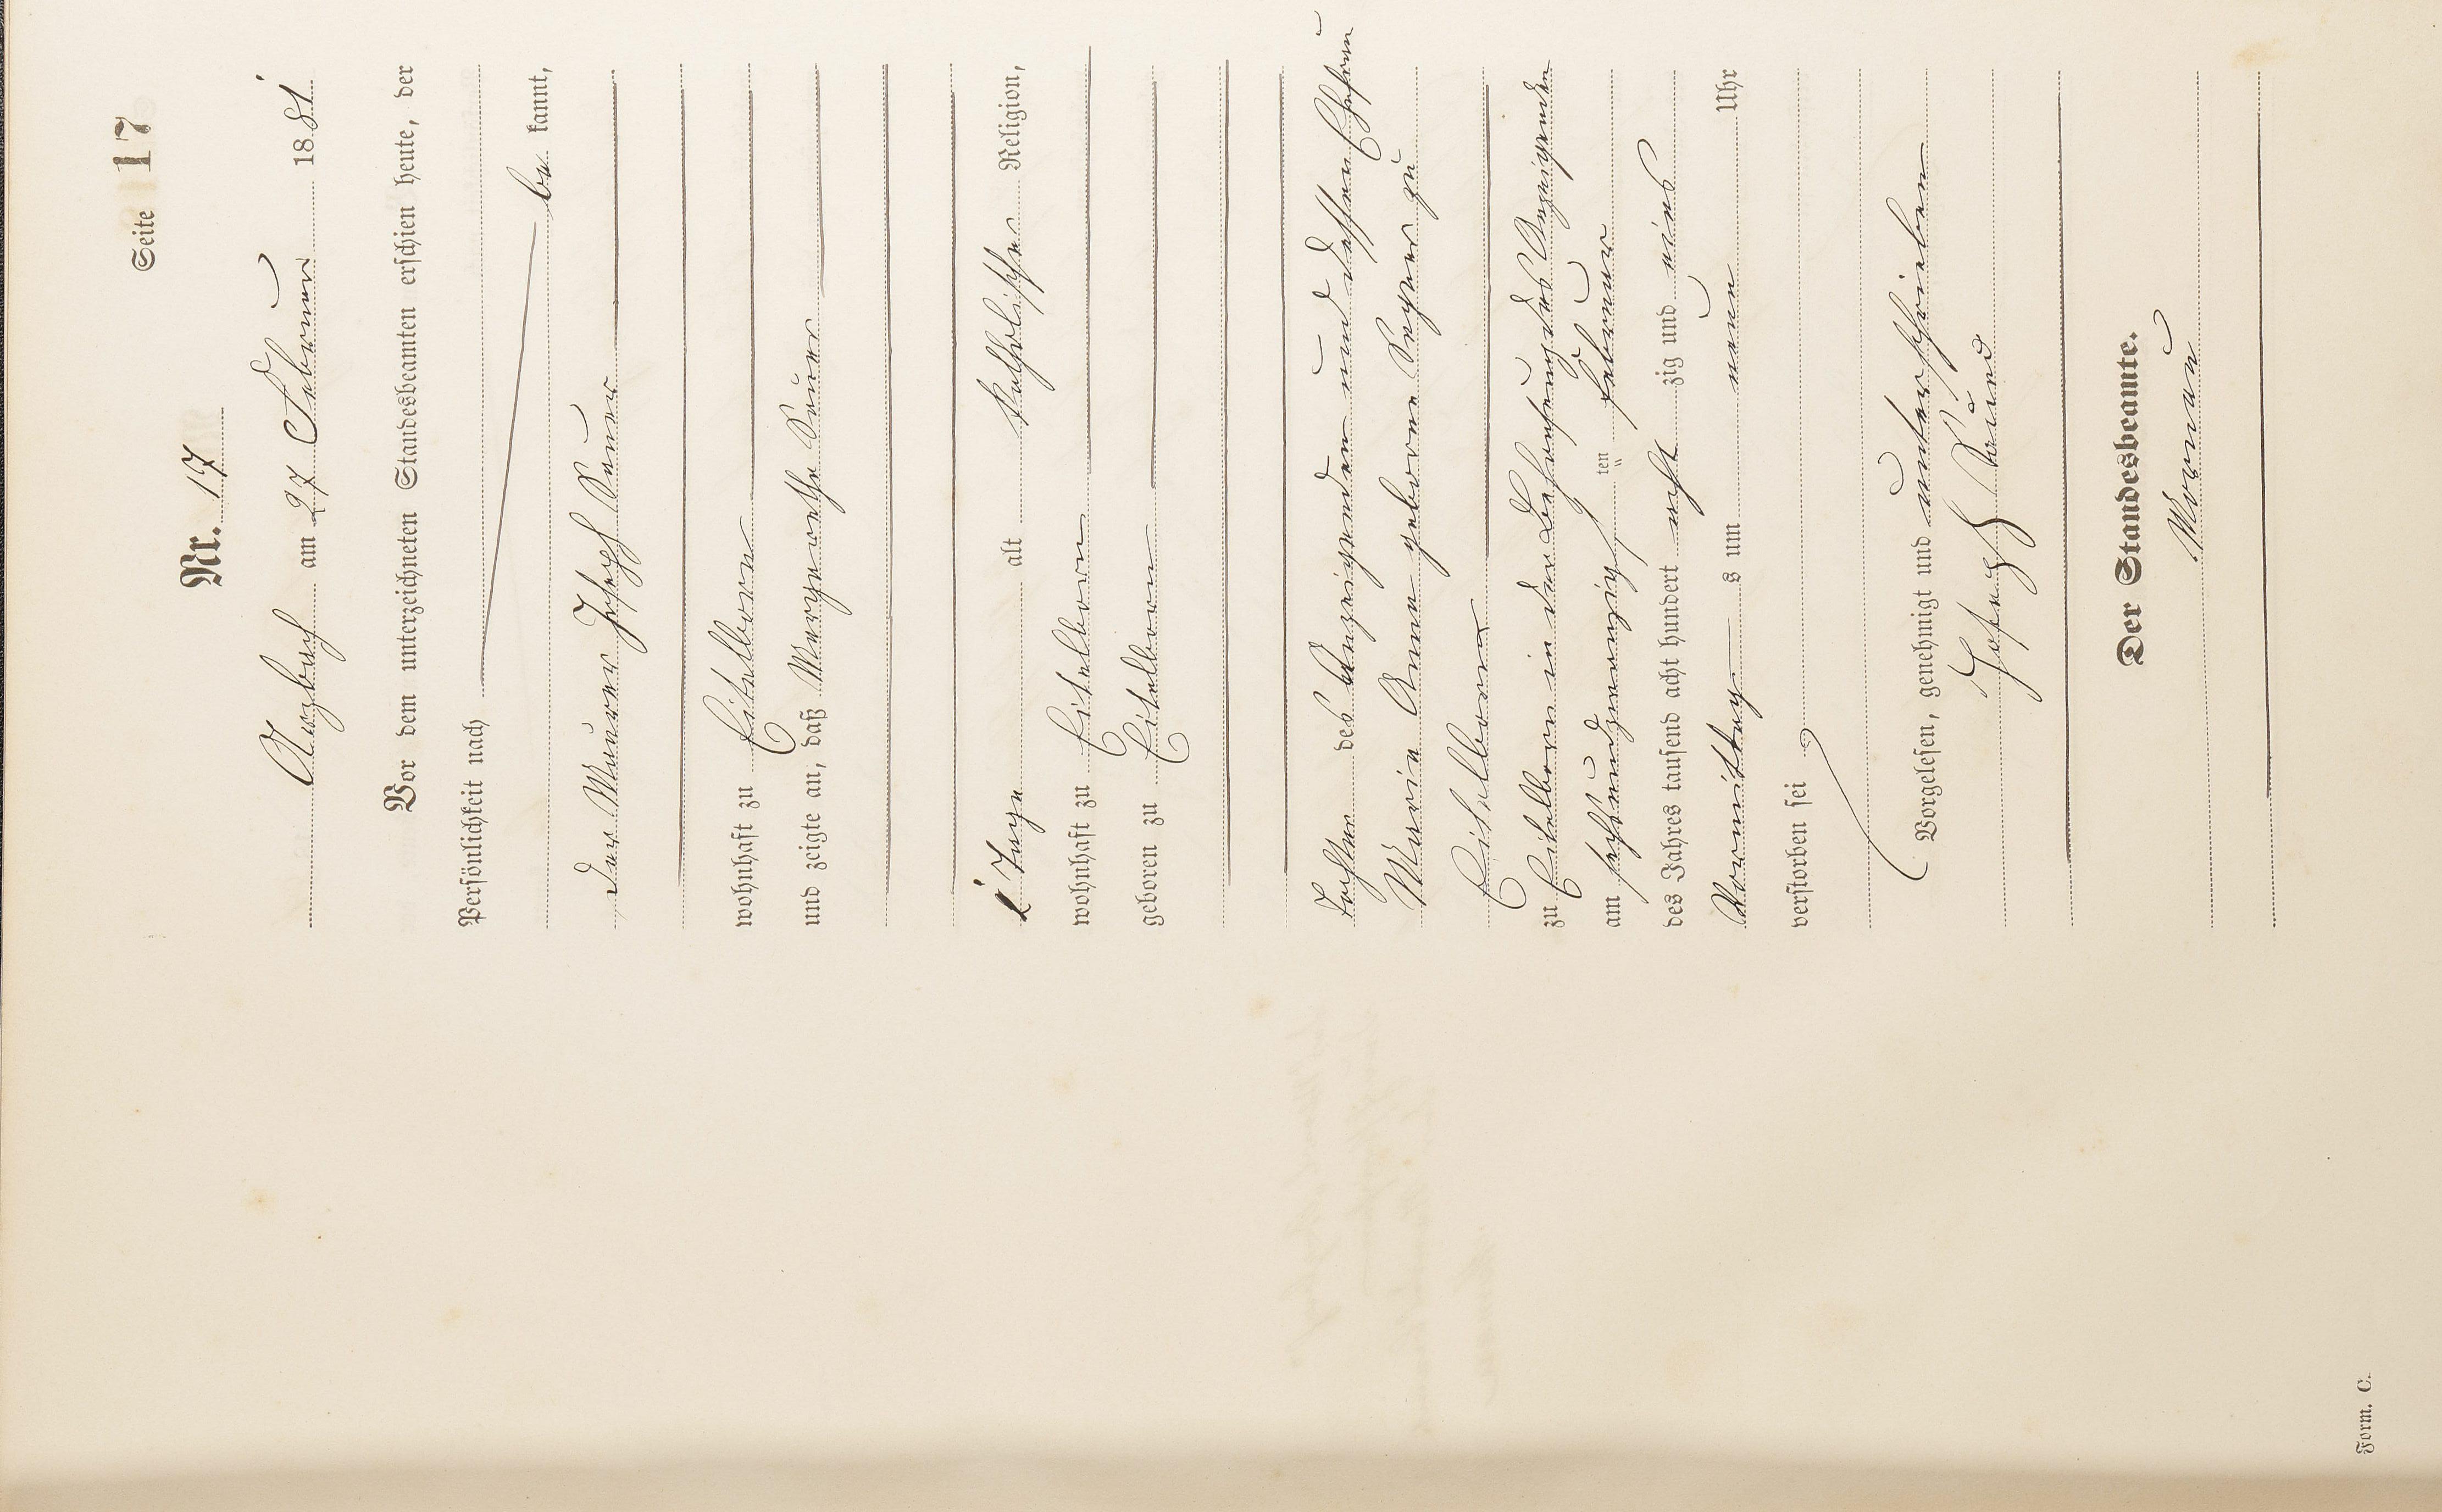 Seite 17
Nr. 17
Arzbach am 27 Februar 1881
Vor dem unterzeichneten Standesbeamten erschien heute, der
Persönlichkeit nach
be kannt,
der Maurer Joseph Sauer
wohnhaft zu Eitelborn
und zeigte an, daß Margarethe Sauer
2 Tage alt katholischer Religion,
wohnhaft zu Eitelborn
geboren zu Eitelborn
Tochter des Anzeigenden und dessen Ehefrau
Maria Anna geborne zu
Eitelborn
zu Eitelborn in der Behausung des Anzeigenden
am sechsundzwanzig ten Februar
des Jahres tausend acht hundert acht zig und eins
Vormittag s um neun Uhr
verstorben sei
Vorgelesen, genehmigt und unterschrieben
Joseph
Der Standesbeamte.
Form. C.